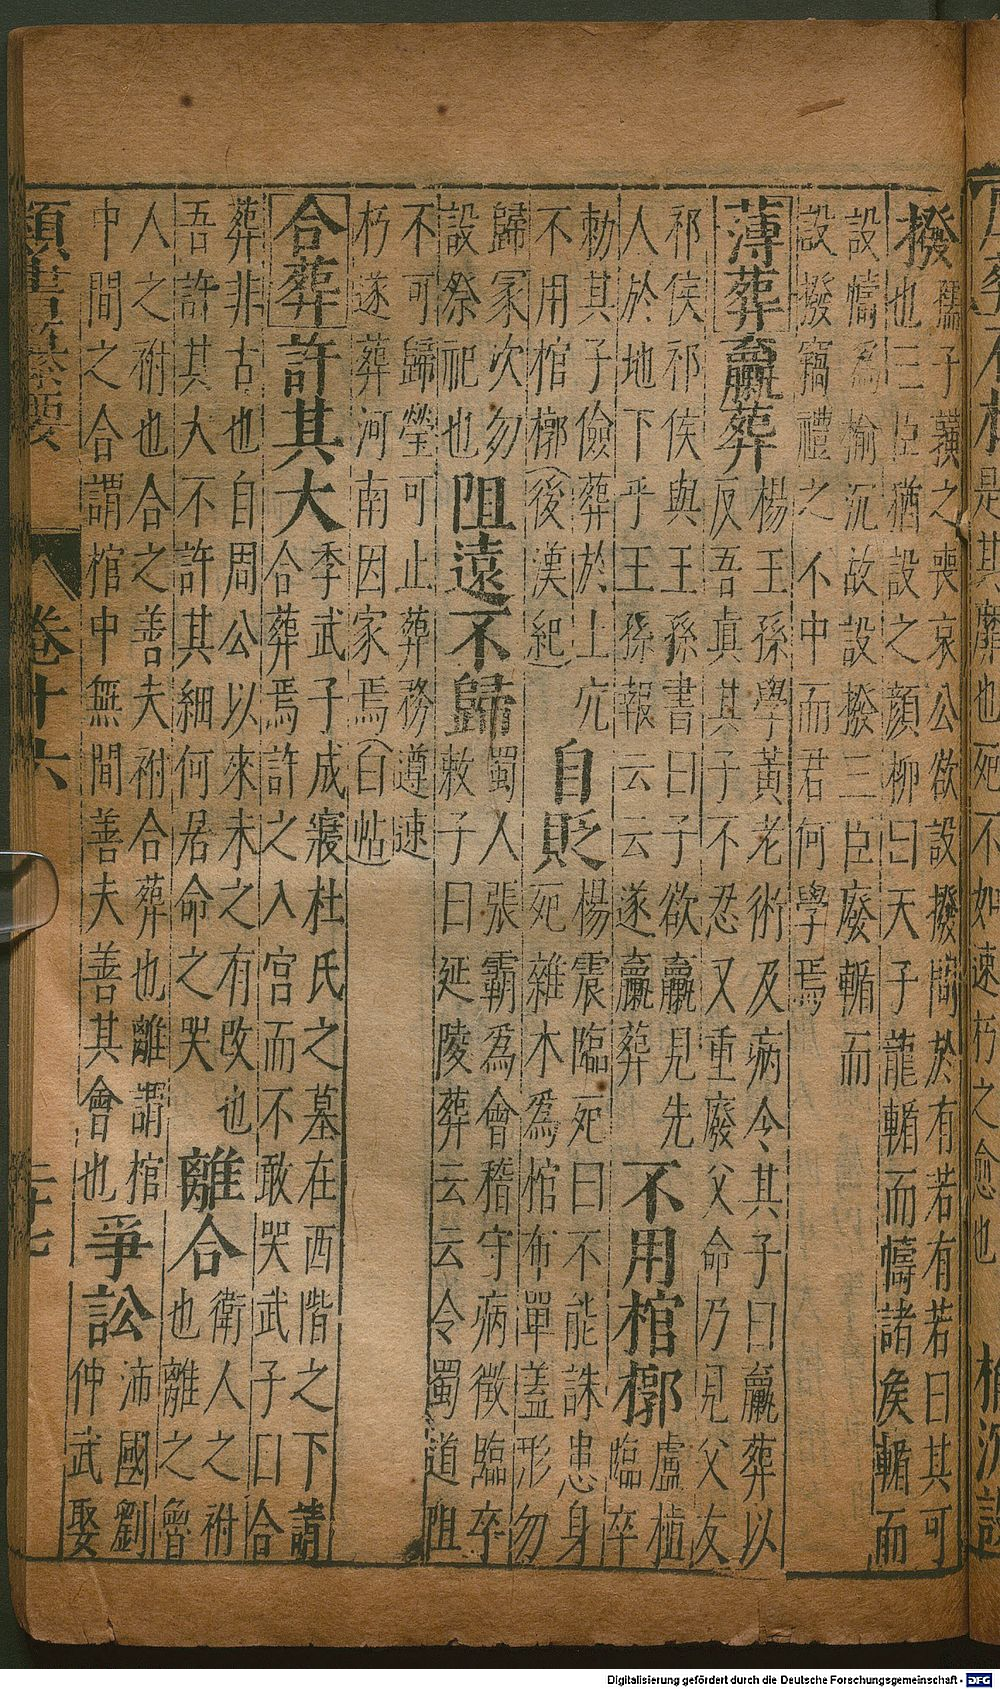 撥 孺子𪏆之喪哀公欲設撥問於有若有若曰其可
也三臣猶設之顏柳曰天子龍輴而幬諸侯輴而
設幬爲揄沉故設撥三臣廢輴而
設撥竊禮之不中而君何學焉
薄葬 羸葬 楊王孫學黃老術及病令其子曰羸葬以
反吾真其子不忍又重廢父命乃見父友
祁侯祁侯與王孫書曰子欲羸見先
人於地下乎王孫報云云遂羸葬 不用棺槨 盧植
臨卒
勅其子儉葬於土穴
不用棺槨(後漢紀) 自貶 楊震臨死曰不能誅惡身
死雜木爲棺布單蓋形勿
歸冢次勿
設祭祀也 阻遠不歸 蜀人張霸爲會稽守病徵臨卒
敕子曰延陵葬云云令蜀道阻
不可歸塋可止葬務遵速
朽遂葬河南因家焉(白帖)
合葬 許其大 季武子成寢杜氏之墓在西階之下請
合葬焉許之入宮而不敢哭武子曰合
葬非古也自周公以來未之有改也
吾許其大不許其細何居命之哭 離合 衛人之祔
也離之魯
人之祔也合之善夫祔合葬也離謂棺
中間之合謂棺中無間善夫善其會也 爭訟 沛國劉
仲武娶
類書纂要 卷十六 二十七
是其靡也死不如速朽之愈也